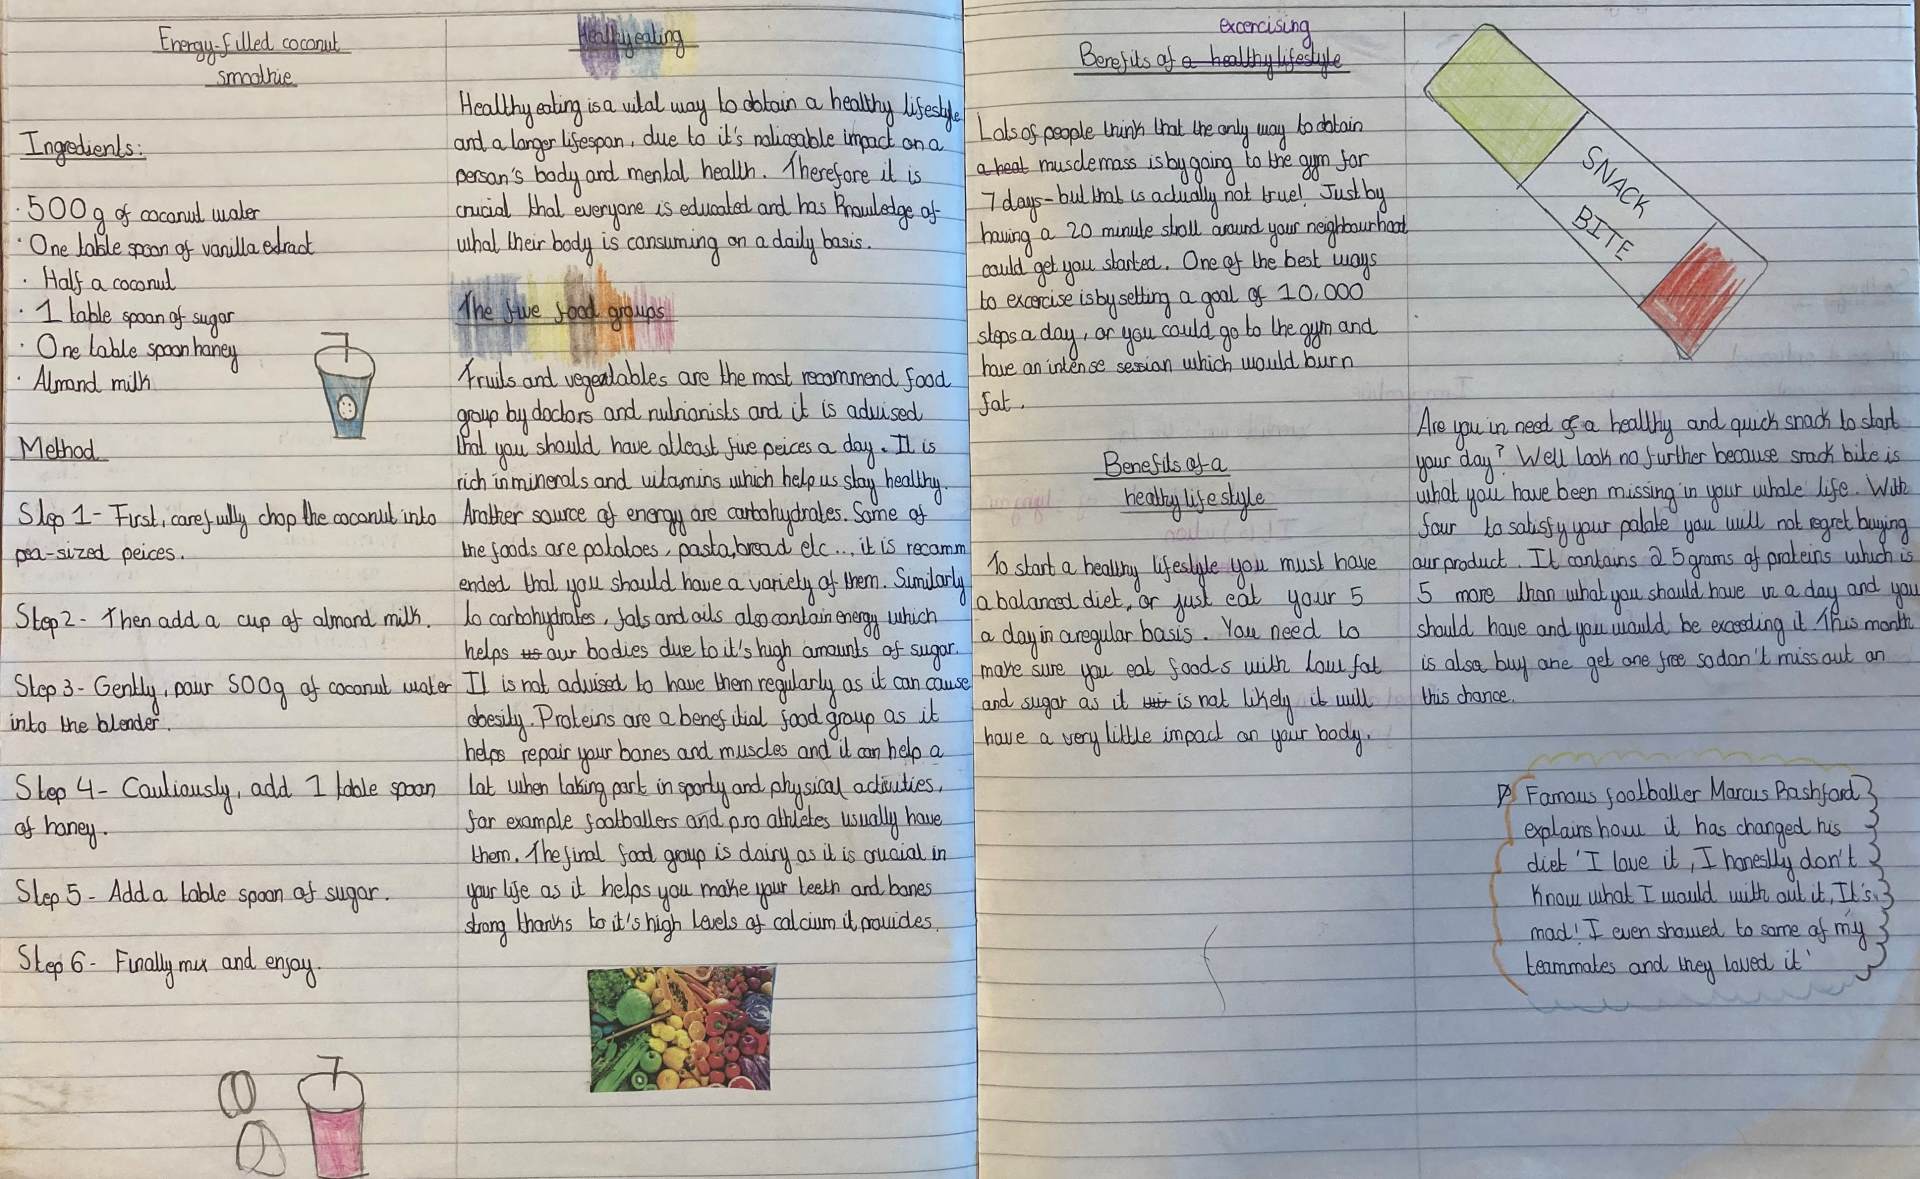 Energy-filled coconut
smoothie
Ingredients:
· 500g of coconut water
· One table spoon of vanilla extract
· Half a coconut
· 1 table spoon of sugar
· One table spoon honey
· Almond milk
Method
Step 1 - First, carefully chop the coconut into
pea-sized peices.
Step 2 - Then add a cup of almond milk.
Step 3 - Gently, pour 500g of coconut water
into the blender.
Step 4 - Cautiously, add 1 table spoon
of honey.
Step 5 - Add a table spoon of sugar.
Step 6 - Finally mix and enjoy.
Healthy eating
Healthy eating is a vital way to obtain a healthy lifestyle
and a longer lifespan, due to it's noticeable impact on a
person's body and mental health. Therefore it is
crucial that everyone is educated and has knowledge of
what their body is consuming on a daily basis.
The five food groups
Fruits and vegeatables are the most recommend food
group by doctors and nutrionists and it is advised
that you should have atleast five peices a day. It is
rich in minerals and vitamins which help us stay healthy.
Another source of energy are carbohydrates. Some of
the foods are potatoes, pasta, bread etc..., it is recomm
ended that you should have a variety of them. Similarly
to carbohydrates, fats and oils also contain energy which
helps us our bodies due to it's high amounts of sugar.
It is not advised to have them regularly as it can cause
obesity. Proteins are a benefitial food group as it
helps repair your bones and muscles and it can help a
lot when taking part in sporty and physical activities,
for example footballers and pro athletes usually have
them. The final food group is dairy as it is crucial in
your life as it helps you make your teeth and bones
strong thanks to it's high levels of calcium it provides.
excercising
Benefits of a healthy lifestyle
Lots of people think that the only way to obtain
a heal muscle mass is by going to the gym for
7 days - but that is actually not true! Just by
having a 20 minute stroll around your neighbourhood
could get you started. One of the best ways
to excercise is by setting a goal of 10,000
steps a day, or you could go to the gym and
have an intense session which would burn
fat.
Benefits of a
healthy life style
To start a healthy lifestyle you must have
a balanced diet, or just eat your 5
a day in a regular basis. You need to
make sure you eat foods with low fat
and sugar as it is not likely it will
have a very little impact on your body.
SNACK
BITE
Are you in need of a healthy and quick snack to start
your day? Well look no further because snack bite is
what you have been missing in your whole life. With
four to satisfy your palate you will not regret buying
our product. It contains 25 grams of proteins which is
5 more than what you should have in a day and you
should have and you would be exceeding it. This month
is also buy one get one free so don't miss out on
this chance.
Famous footballer Marcus Rashford
explains how it has changed his
diet 'I love it, I honestly don't
know what I would with out it, It's
mad! I even showed to some of my
teammates and they loved it'